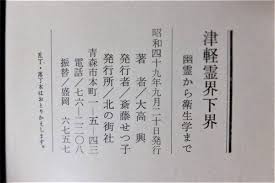 津軽霊界下界
幽霊から衛生学まで
昭和四十九年九月二十日発行
著者／大高 興
発行者／斎藤せつ子
発行所／北の街社
青森市本町一ー五ー四三
電話／七六ー二二〇八
振替／盛岡 六七五七
乱丁・落丁本はおとりかえします。